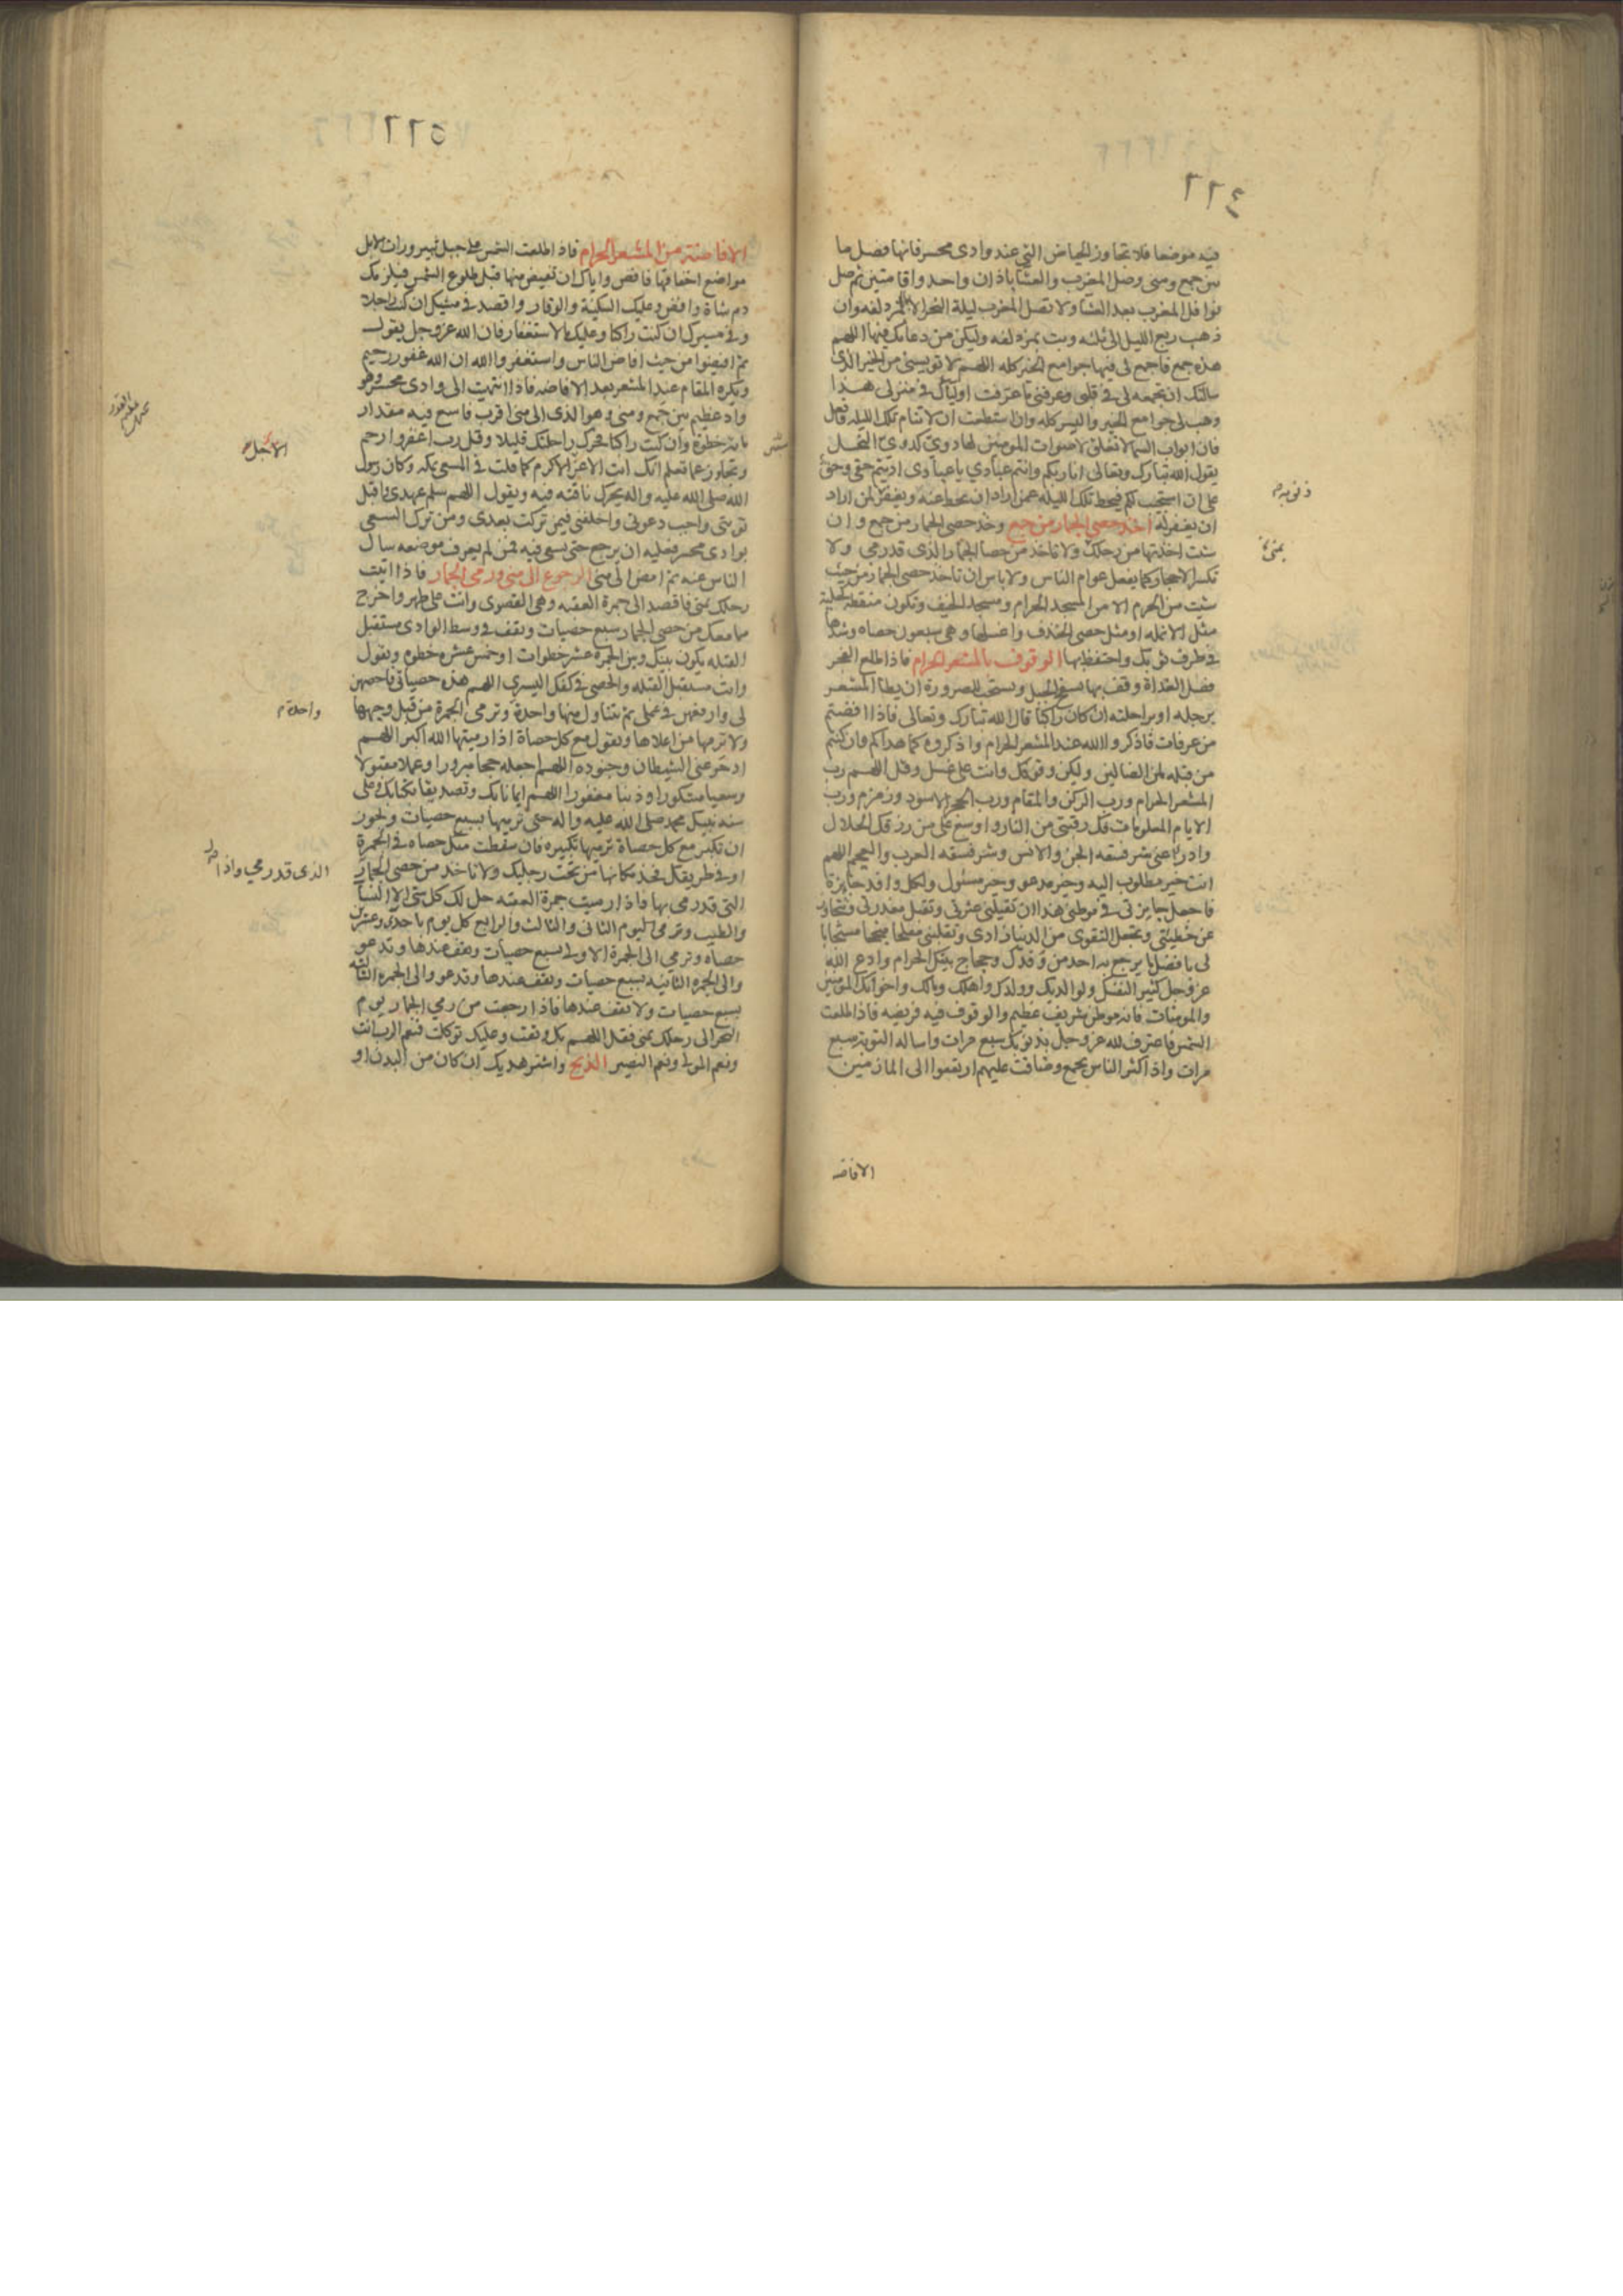 ٢٢٤
فيه موضعا فلا تجاوز الحياض التي عند وادي محسر فانها فصل ما
بين جمع ومنى وصل المغرب والعشا باذان واحد واقامتين ثم صل
نوافل المغرب بعد العشا ولا تصل المغرب ليلة النحر الا بالمزدلفه وان
ذهب ربع الليل الى ثلثه وبت بمزدلفه وليكن من دعائك فيها اللهم
هذه جمع فاجمع لي فيها جوامع الخير كله اللهم لا تويسني من الخير الذى
سالتك ان تجمعه لى في قلبى وعرفنى ما عرفت اولياك في منزلى هذا
وهب لى جوامع الخير واليسر كله وان استطعت ان لا تنام تلك الليله فافعل
فان ابواب السما لا تغلق لاصوات المومنين لها دوي كدوي النحل
يقول الله تبارك وتعالى انا ربكم وانتم عبادي يا عبادى اديتم حقى وحق
على ان استجيب لكم فيحط تلك الليله عمن اراد ان يحط عنه ويغفر لمن اراد
ذنوبه
ان يغفر له اخذ حصى الجمار من جمع وخذ حصى الجمار من جمع وان
شئت اخذتها من رحلك ولا تاخذ من حصا الجمار الذى قد رمى ولا
بمنى
تكسر الاحجار كما يفعل عوام الناس ولا باس ان تاخذ حصى الجمار من حيث
شئت من الحرم الا من المسجد الحرام ومسجد الخيف وتكون منقطة كحلية
مثل الانمله او مثل حصى الخذف واغسلها وهى سبعون حصاه وشدها
في طرف ثوبك واحتفظ بها الوقوف بالمشعر الحرام فاذا طلع الفجر
فصل الغداة وقف بها بسفح الجبل ويستحب للصرورة ان يطا المشعر
برجله او براحلته ان كان راكبا قال الله تبارك وتعالى فاذا افضتم
من عرفات فاذكروا الله عند المشعر الحرام واذكروه كما هداكم وان كنتم
من قبله لمن الضالين وليكن وقوفك وانت على غسل وقل اللهم رب
المشعر الحرام ورب الركن والمقام ورب الحجر الاسود وزمزم ورب
الايام المعلومات فك رقبتى من النار واوسع على من رزقك الحلال
وادرا عنى شر فسقه الجن والانس وشر فسقه العرب والعجم اللهم
انت خير مطلوب اليه وخير مدعو وخير مسئول ولكل وافد جايزة
فاجعل جايزتى في موطنى هذا ان تقيلنى عثرتى وتقبل معذرتى وتتجاوز
عن خطيئتى وتجعل التقوى من الدنيا زادى وتقلبنى مفلحا منجحا مستجابا
لى بافضل ما يرجع به احد من وفدك وحجاج بيتك الحرام وادع الله
عز وجل كثيرا لنفسك ولوالديك وولدك واهلك ومالك واخوانك المومنين
والمومنات فانه موطن شريف عظيم والوقوف فيه فريضه فاذا طلعت
الشمس فاعترف لله عز وجل بذنوبك سبع مرات واساله التوبة سبع
مرات واذا كثر الناس بجمع وضاقت عليهم ارتفعوا الى المازمين
الافاضه
٢٢٥
الافاضة من المشعر الحرام فاذا طلعت الشمس على جبل ثبير ورات الابل
مواضع اخفافها فافض واياك ان تفيض منها قبل طلوع الشمس فيلزمك
دم شاة وافض وعليك السكينة والوقار واقصد في مشيك ان كنت راجلا
وفي مسيرك ان كنت راكبا وعليك بالاستغفار فان الله عز وجل يقول
ثم افيضوا من حيث افاض الناس واستغفروا الله ان الله غفور رحيم
ويكره المقام عند المشعر بعد الافاضه فاذا انتهيت الى وادى محسر وهو
واد عظيم بين جمع ومنى وهو الذى الى منى اقرب فاسع فيه مقدار
مائة خطوة وان كنت راكبا فحرك راحلتك قليلا وقل رب اغفر وارحم
الاجل
وتجاوز عما تعلم انك انت الاعز الاكرم كما قلت في المسعى بمكه وكان رسول
الله صلى الله عليه واله يحرك ناقته فيه ويقول اللهم سلم عهدى واقبل
توبتى واجب دعوتى واخلفنى فيمن تركت بعدى ومن ترك السعى
بوادى محسر فعليه ان يرجع حتى يسعى فيه فمن لم يعرف موضعه سال
الناس عنه ثم امض الى منى الرجوع الى منى ورمى الجمار فاذا اتيت
رحلك بمنى فاقصد الى جمرة العقبه وهى القصوى وانت على طهر واخرج
مما معك من حصى الجمار سبع حصيات وتقف في وسط الوادى مستقبل
القبله يكون بينك وبين الجمرة عشر خطوات او خمس عشره خطوه وتقول
وانت مستقبل القبله والحصى في كفك اليسرى اللهم هذه حصياتى فاحصهن
لى وارفعهن في عملى ثم تتناول منها واحدة وترمى الجمرة من قبل وجهها
واحدة
ولا ترمها من اعلاها وتقول مع كل حصاة اذا رميتها الله اكبر اللهم
ادحر عنى الشيطان وجنوده اللهم اجعله حجا مبرورا وعملا مقبولا
وسعيا مشكورا وذنبا مغفورا اللهم ايمانا بك وتصديقا بكتابك وعلى
سنه نبيك محمد صلى الله عليه واله حتى ترميها بسبع حصيات ويجوز
ان تكبر مع كل حصاة ترميها تكبيره فان سقطت منك حصاه في الجمرة
او في طريقك فخذ مكانها من تحت رجليك ولا تاخذ من حصى الجمار
الذى قد رمي واذا
التى قد رمى بها فاذا رميت جمرة العقبه حل لك كل شى الا النسا
والطيب وترمى اليوم الثانى والثالث والرابع كل يوم باحدى وعشرين
حصاه وترمي الى الجمرة الاولى بسبع حصيات وتقف عندها وتدعو
والى الجمره الثانيه بسبع حصيات وتقف عندها وتدعو والى الجمره الثالثه
بسبع حصيات ولا تقف عندها فاذا رجعت من رمي الجمار يوم
النحر الى رحلك بمنى فقل اللهم بك وثقت وعليك توكلت فنعم الرب انت
ونعم المولى ونعم النصير الذبح واشتر هديك ان كان من البدن او